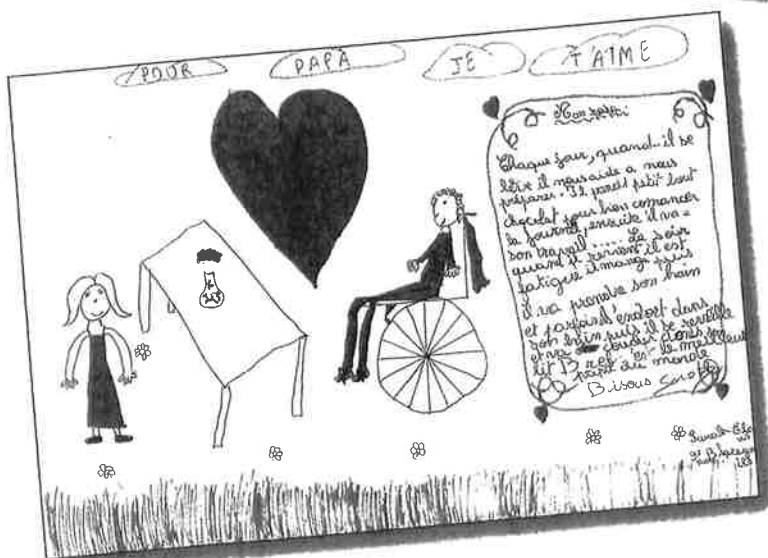 POUR PAPA JE T'AIME
Mon papa
Chaque jour, quand il se
lève il nous aide a nous
préparer. Il prend petit lait
chocolat pour bien commencer
la journée, ensuite il va a
son travail ..... Le soir
quand il revient il est
fatigué il mange puis
il va prendre son bain
et parfois il s'endort dans
son bain puis il se reveille
et va se coucher dans son
lit Bref c'est le meilleur
papa du monde
Bisous